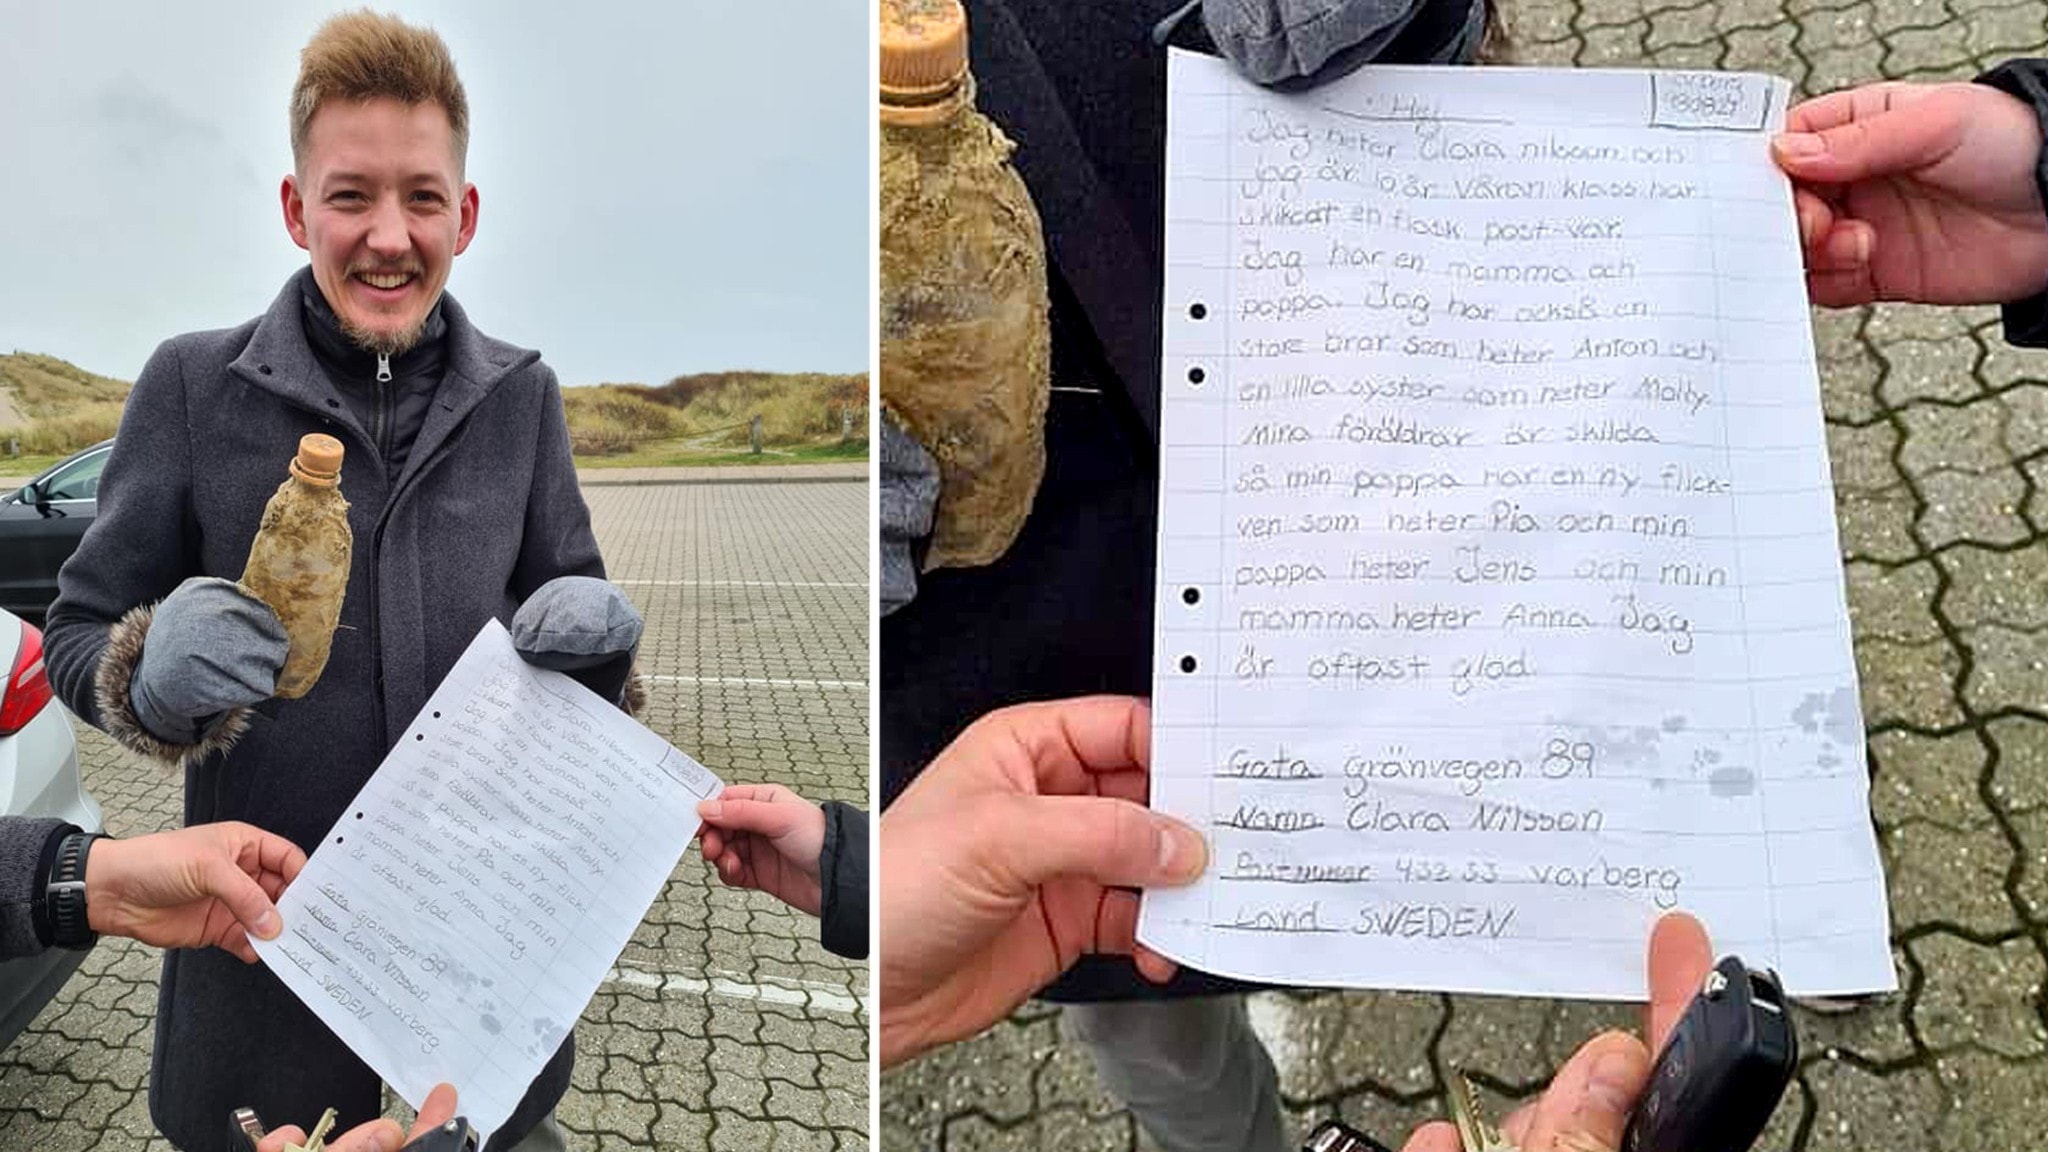 Hej
Jag heter Clara nilsson och
jag är 10 år Våran klass har
skikcat en flask post-var.
Jag har en mamma och
pappa. Jag har också en
store bror som heter Anton och
en lilla syster som heter Molly.
Mina föräldrar är skilda
så min pappa har en ny flick-
ven som heter Pia och min
pappa heter Jens och min
mamma heter Anna Jag
är oftast glad.
Gata gränvegen 89
Namn Clara Nilsson
Postnummer 432 53 varberg
Land SWEDEN